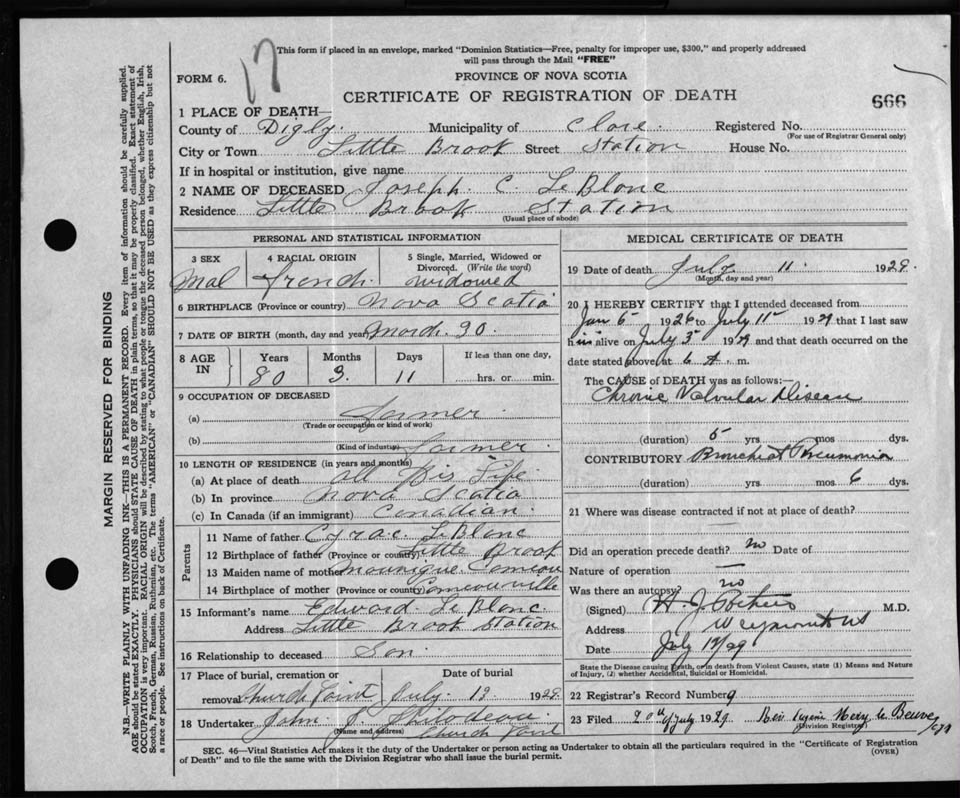 17
This form if placed in an envelope, marked "Dominion Statistics—Free, penalty for improper use, $300," and properly addressed
will pass through the Mail "FREE"
FORM 6.
PROVINCE OF NOVA SCOTIA
CERTIFICATE OF REGISTRATION OF DEATH
666
1 PLACE OF DEATH—
County of Digby. Municipality of Clare. Registered No.
(For use of Registrar General only)
City or Town Little Brook Street Station House No.
If in hospital or institution, give name
2 NAME OF DECEASED Joseph. C. LeBlanc
Residence Little Brook Station
(Usual place of abode)
PERSONAL AND STATISTICAL INFORMATION
3 SEX 4 RACIAL ORIGIN 5 Single, Married, Widowed or
Divorced. (Write the word)
Mal French. widowed
6 BIRTHPLACE (Province or country) Nova Scotia
7 DATE OF BIRTH (month, day and year) March. 30.
8 AGE IN Years Months Days If less than one day,
80 3. 11 hrs. or min.
9 OCCUPATION OF DECEASED
(a) farmer.
(Trade or occupation or kind of work)
(b) farmer.
(Kind of industry)
10 LENGTH OF RESIDENCE (in years and months)
(a) At place of death all his Life.
(b) In province Nova Scotia
(c) In Canada (if an immigrant) Canadian.
Parents
11 Name of father LeBlanc
12 Birthplace of father (Province or country) Little Brook
13 Maiden name of mother Comeau
14 Birthplace of mother (Province or country) Comeauville
15 Informant's name Edward. LeBlanc.
Address Little Brook Station
16 Relationship to deceased Son.
17 Place of burial, cremation or Date of burial
removal Church Point July. 12. 1929.
18 Undertaker John. Church Point
(Name and address)
MEDICAL CERTIFICATE OF DEATH
19 Date of death July 11 1929.
(Month, day and year)
20 I HEREBY CERTIFY that I attended deceased from
Jan 5 1926 to July 11 1929 that I last saw
him alive on July 3 1929 and that death occurred on the
date stated above at 6 A. m.
The CAUSE of DEATH was as follows:—
Chronic Valvular Disease
(duration) 5 yrs mos dys.
CONTRIBUTORY Bronchial Pneumonia
(duration) yrs mos 6 dys.
21 Where was disease contracted if not at place of death?
Did an operation precede death? no Date of
Nature of operation —
Was there an autopsy? no
(Signed) H. J. M.D.
Address Weymouth NS
Date July 12/29
State the Disease causing Death, or in death from Violent Causes, state (1) Means and Nature
of Injury, (2) whether Accidental, Suicidal or Homicidal.
22 Registrar's Record Number 9
23 Filed 20th of July 1929
(Division Registrar)
SEC. 46—Vital Statistics Act makes it the duty of the Undertaker or person acting as Undertaker to obtain all the particulars required in the "Certificate of Registration
of Death" and to file the same with the Division Registrar who shall issue the burial permit.
(OVER)
MARGIN RESERVED FOR BINDING
N.B.—WRITE PLAINLY WITH UNFADING INK—THIS IS A PERMANENT RECORD. Every item of information should be carefully supplied.
AGE should be stated EXACTLY. PHYSICIANS should STATE CAUSE OF DEATH in plain terms, so that it may be properly classified. Exact statement of
OCCUPATION is very important. RACIAL ORIGIN will be described by stating to what people or tongue the deceased person belonged, whether English, Irish,
Scotch, French, German, Russian, Ruthenian, etc. The terms "AMERICAN" or "CANADIAN" SHOULD NOT BE USED as they express citizenship but not
a race or people. See instructions on back of Certificate.